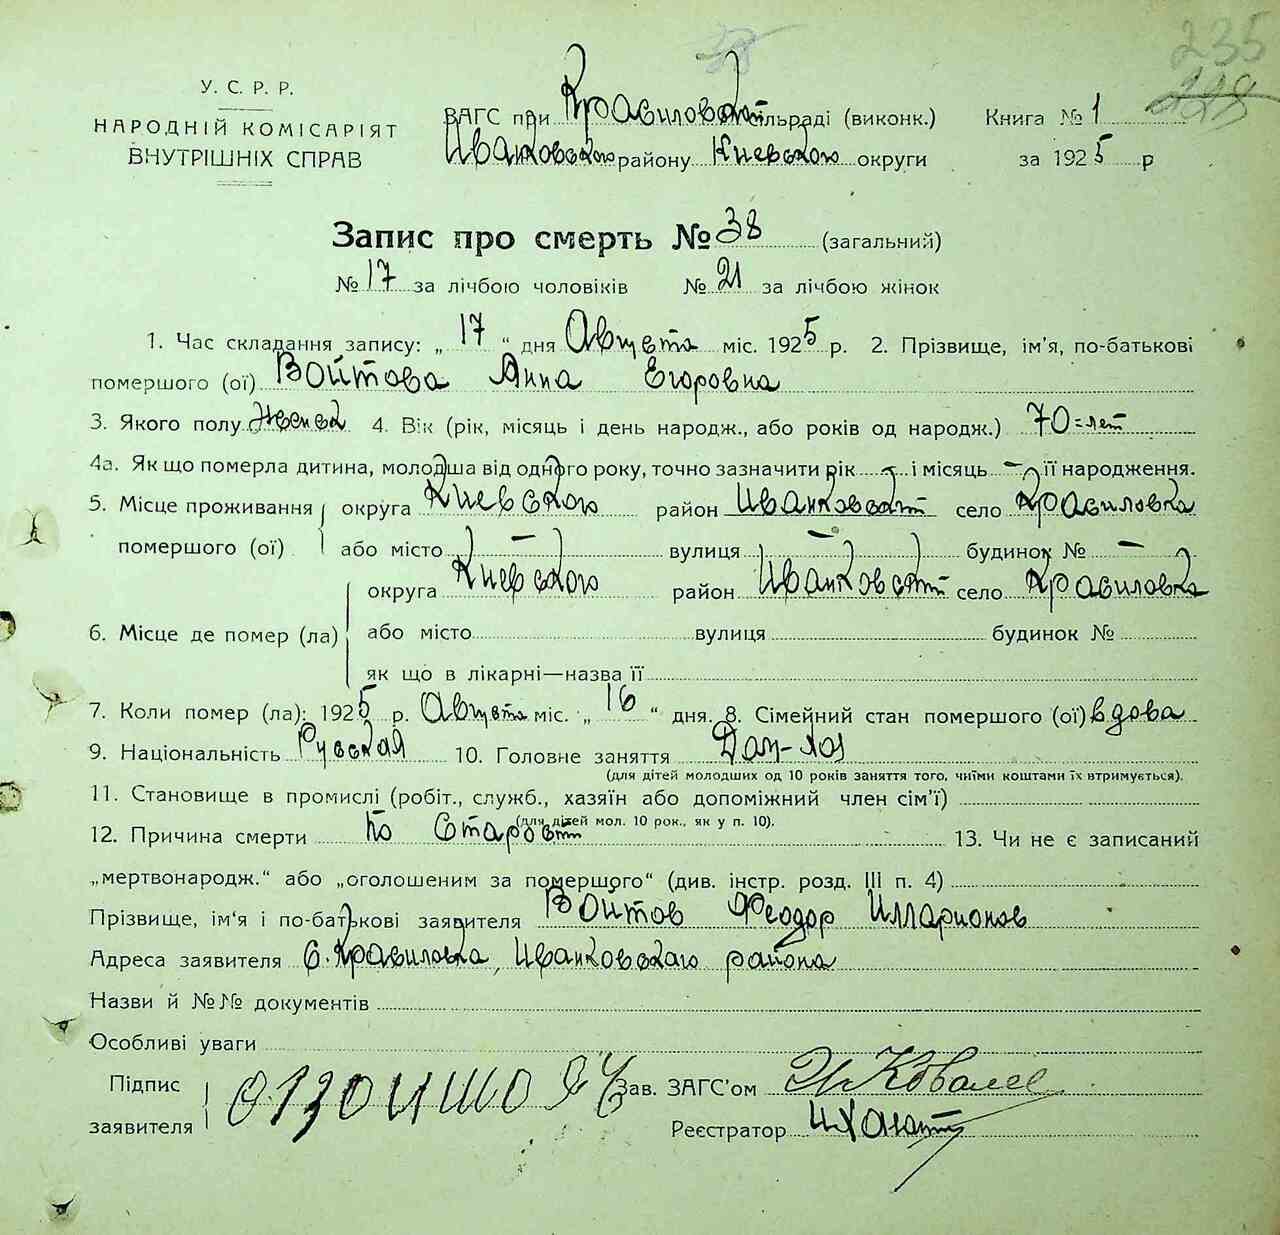 235
38
118
У. С. Р. Р.
НАРОДНІЙ КОМІСАРІЯТ
ВНУТРІШНІХ СПРАВ
ВАГС при Красиловской сільраді (виконк.) Книга № 1
Иванковского району Киевского округи за 1925 р
Запис про смерть № 38 (загальний)
№ 17 за лічбою чоловіків № 21 за лічбою жінок
1. Час складання запису: „ 17 “ дня Августа міс. 1925 р. 2. Прізвище, ім’я, по-батькові
помершого (ої) Войтова Анна Егоровна
3. Якого полу Женск 4. Вік (рік, місяць і день народж., або років од народж.) 70=лет
4а. Як що померла дитина, молодша від одного року, точно зазначити рік — і місяць — її народження.
5. Місце проживання округа Киевского район Иванковский село Красиловка
помершого (ої) або місто — вулиця — будинок № —
округа Киевского район Иванковский село Красиловка
6. Місце де помер (ла) або місто вулиця будинок №
як що в лікарні—назва її
7. Коли помер (ла): 1925 р. Августа міс. „ 16 “ дня. 8. Сімейний стан помершого (ої) вдова
9. Національність Русская 10. Головне заняття Дом-хоз
(для дітей молодших од 10 років заняття того, чиїми коштами їх втримується).
11. Становище в промислі (робіт., служб., хазяїн або допоміжний член сім’ї)
(для дітей мол. 10 рок., як у п. 10).
12. Причина смерти По старости 13. Чи не є записаний
„мертвонародж.“ або „оголошеним за помершого“ (див. інстр. розд. III п. 4)
Прізвище, ім‘я і по-батькові заявителя Войтов Феодор Илларионов
Адреса заявителя С. Красиловка, Иванковского района
Назви й №№ документів
Особливі уваги
Підпис Зав. ЗАГС’ом
заявителя
Реєстратор